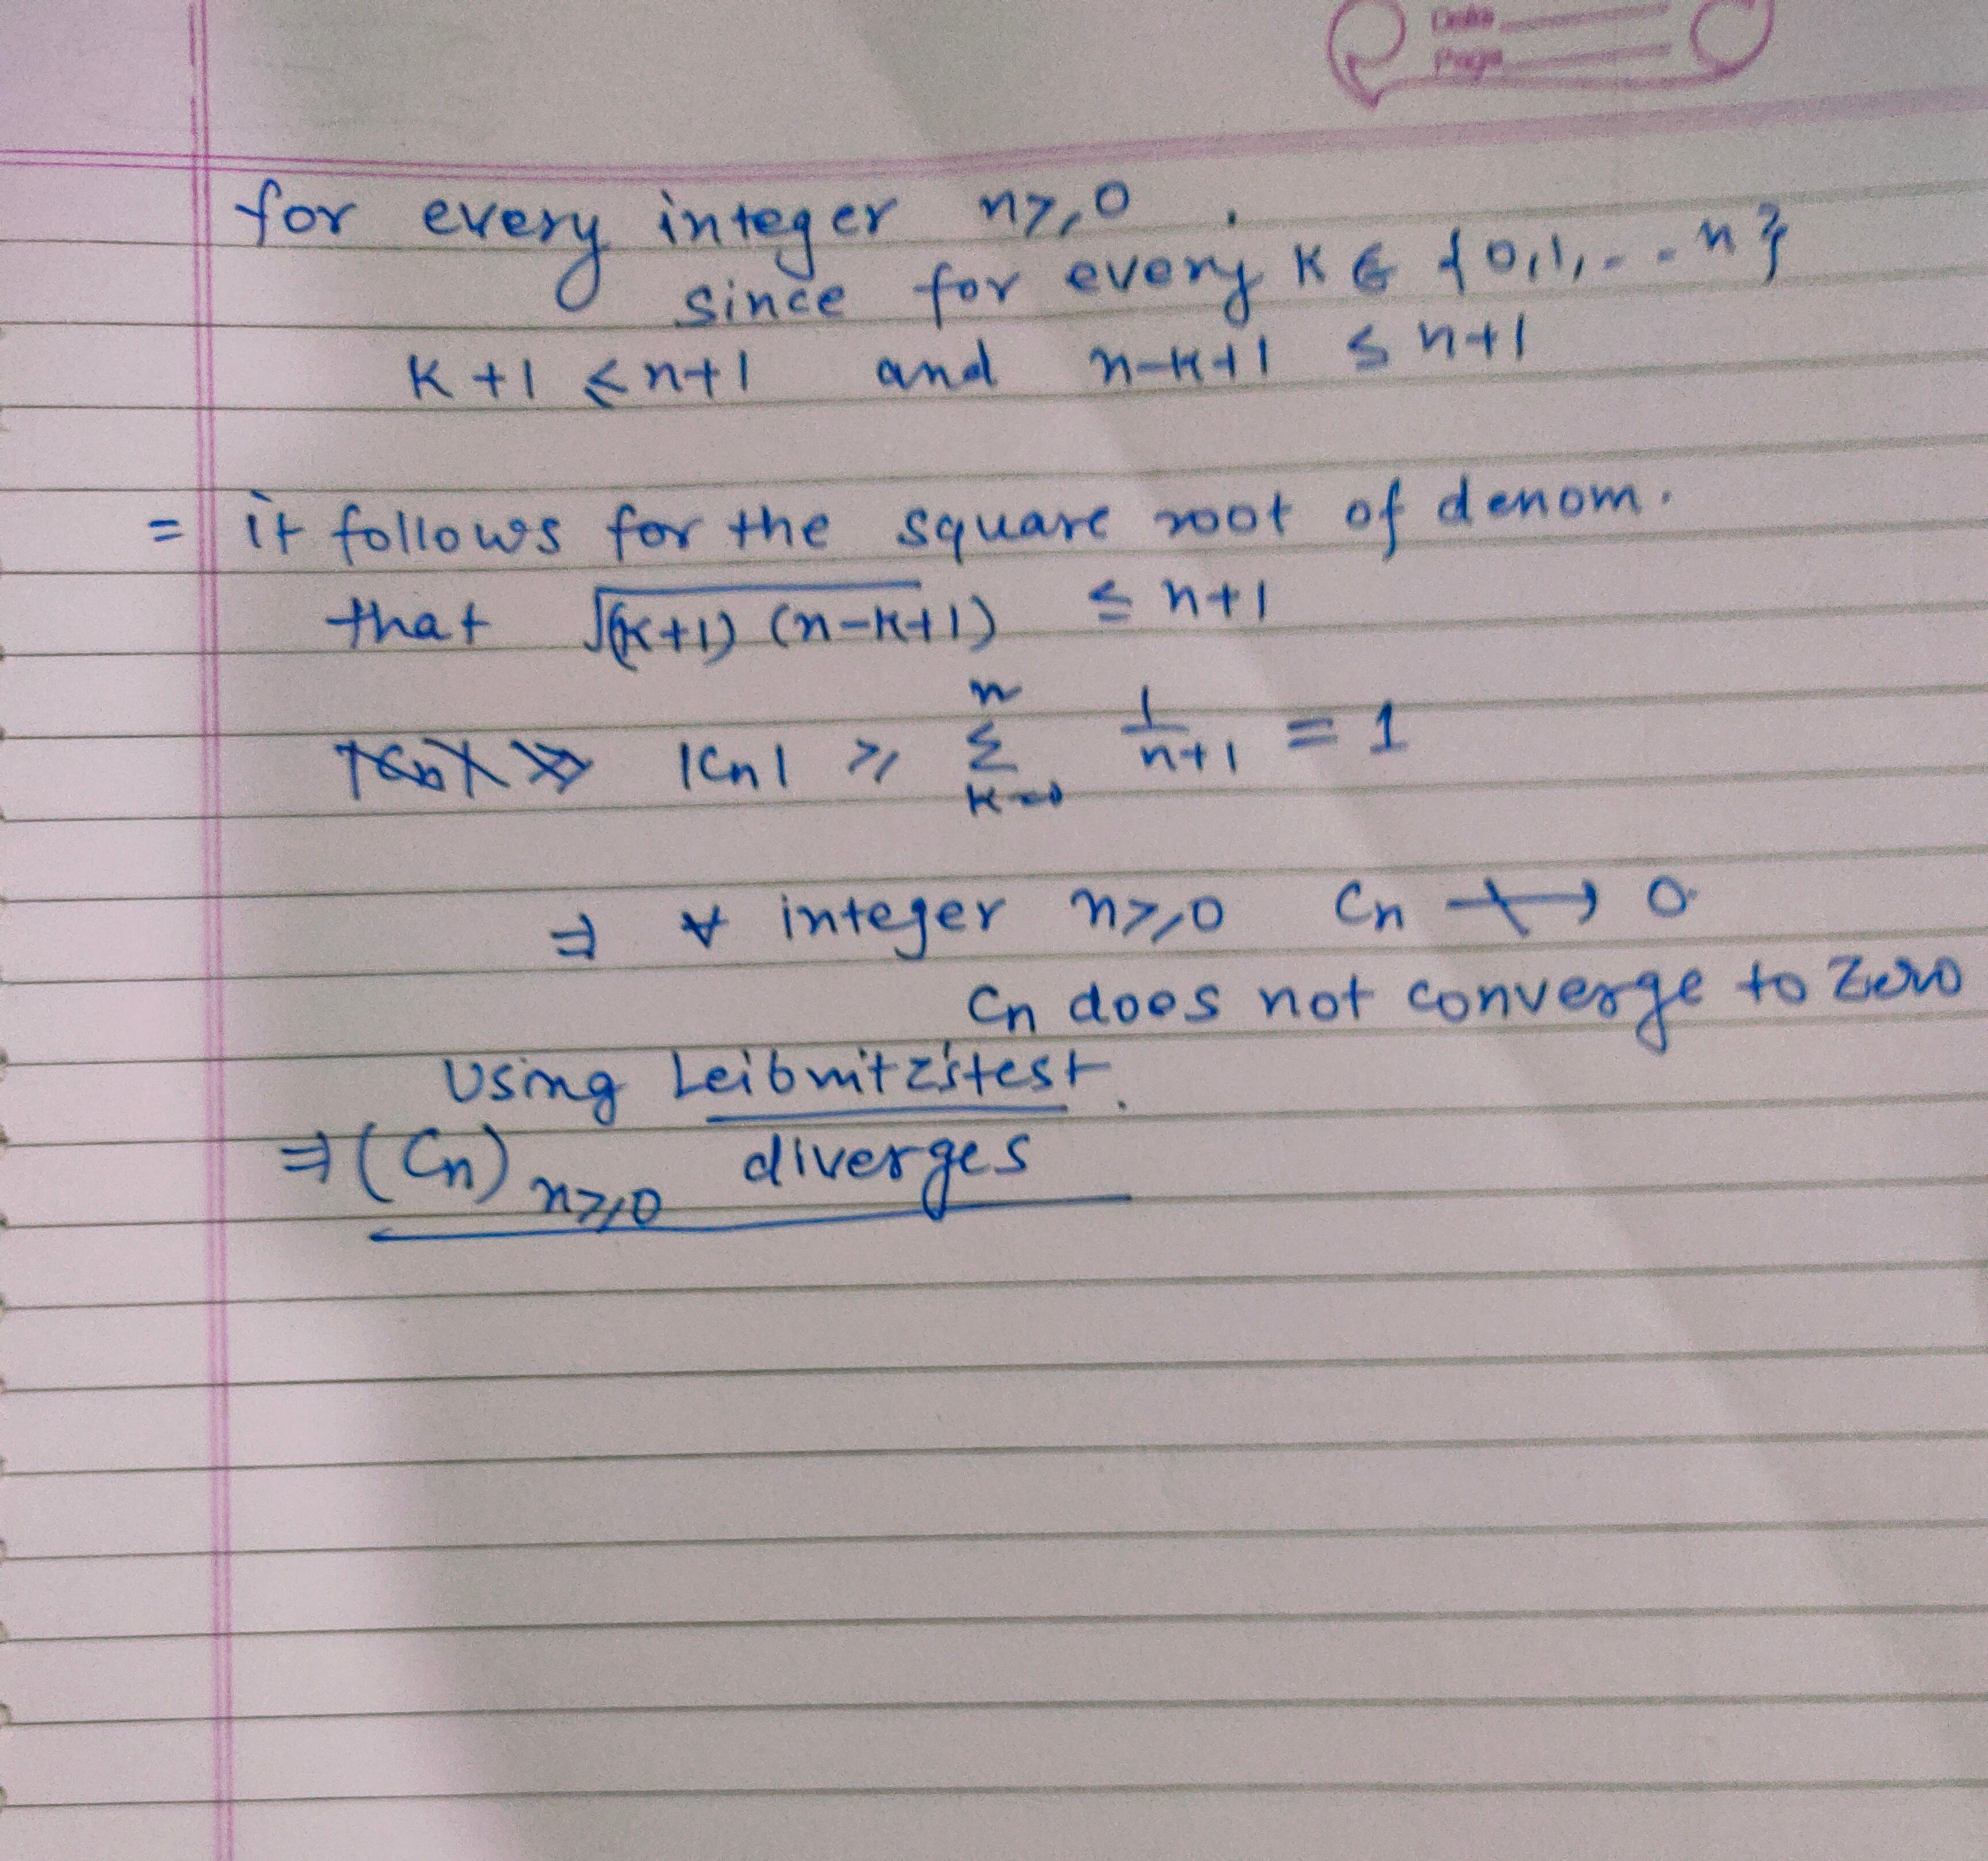 Date
Page
for every integer n ≥ 0 .
since for every K ∈ {0,1,--n}
K+1 ≤ n+1 and n-K+1 ≤ n+1
= it follows for the square root of denom.
that √(K+1) (n-K+1) ≤ n+1
|Cn| ≥ n Σ K=0 1/n+1 = 1
⇒ ∀ integer n ≥ 0 Cn ↛ 0
Cn does not converge to Zero
Using Leibnitz's test.
⇒ (Cn) n≥0 diverges